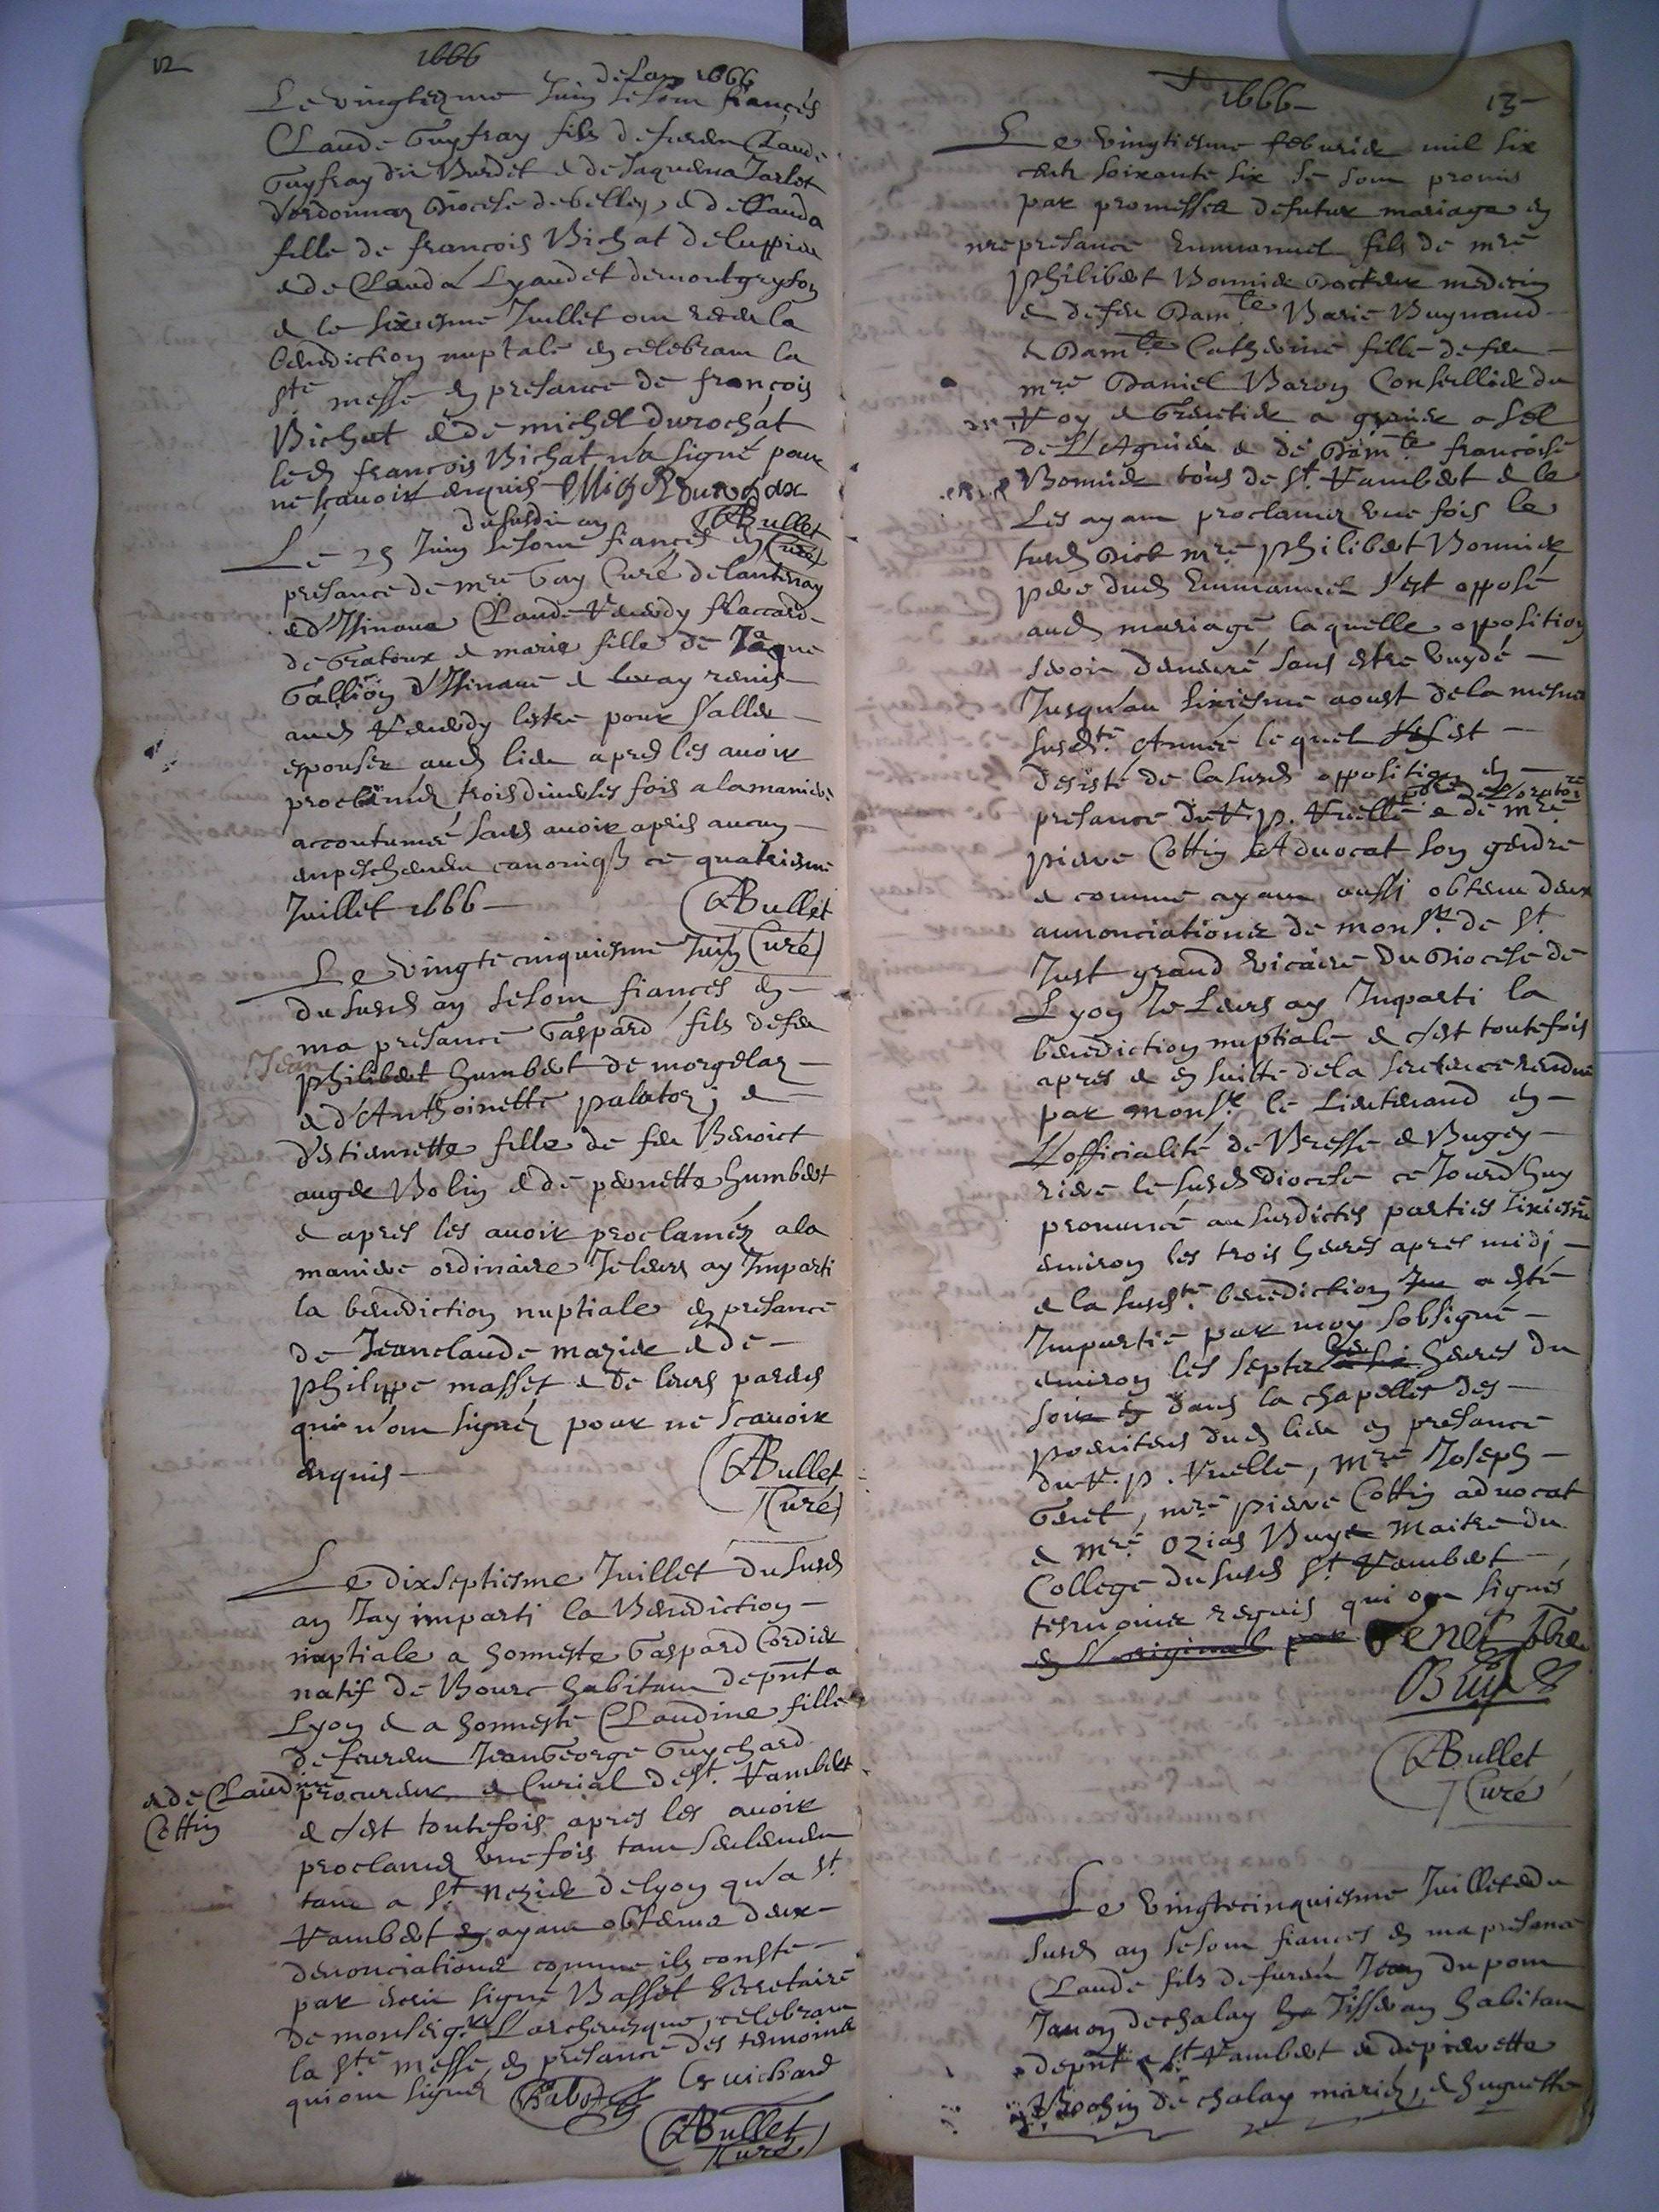 12
1666
de Lan 1666
Le vingtiesme Juin se som fiancés
Claude Guyfray fils de feu Claude
Guyfray dit Burdet & de Jaquema Jarlot
diocese de belley, & de Clauda
fille de francois Bichat de luppieu
& de Clauda Lyaudet de montgryfon
& le sixiesme Juillet om receu la
benediction nuptale en celebram la
Ste messe en presance de françois
Bichat & de michel durochat
led francois Bichat n'a signé pour
ne sçauoir enquis
ABullet
Curé
du susdit an
Le 25 Juin se som fiancés en
presance de mre Gay Curé de lantenay
& d'Isinaue Claude fraccard
de & marie fille de Jaque
Gallion d'Isinaue & remis
aud lettre pour s'aller
espouser aud lieu apres les auoir
proclamés trois diuerses fois a la maniere
accoutumée sans auoir apris aucun
enpeschemem canoniq ce quatriesme
Juillet 1666
ABullet
Curé
Le vingtecinquiesme Juin
du susd an se som fiancés en
ma presance Gaspard fils de feu
Jean
philibert humbert de morgelaz
& d'Anthoinette palatoz; &
d'Estiennette fille de feu Benoict
auger Bolin & de pernette humbert
& apres les auoir proclaméz a la
maniere ordinaire Je leurs ay Imparti
la benediction nuptiale en presance
de Jeanclaude mazier & de
philippe masset & de leurs pareds
qui n'om signéz pour ne scauoir
enquis
ABullet
Curé
Le dixseptiesme Juillet du susd
an Jay imparti la Benediction
nuptiale a honneste Gaspard Cordier
natif de Bourc habitam depnt a
Lyon & a honneste Claudine fille
de feu Jean George Guychard
procureur & Curial de St Rambert
& de Claudine
Cottin
& c'est toutefois apres les auoir
proclamés vne fois tam seulemem
tam a St Nezier de lyon qu'a St
Rambert en ayam obtenu deux
denonciations comme ils conste
par escrit signé Basset Secretaire
de monseigr L'archeuesque, celebram
la Ste messe, en presance des temoins
qui om signéz
Guichard
ABullet
Curé
1666
13
Le vingtiesme feburier mil six
cents soixante six se som promis
par promesses de futur mariage en
nre presance Emmanuel fils de mre
philibert Bonnier Docteur medecin
& de feu Damlle Marie Buynaud
& Damlle Catherine fille de feu
mre Daniel Baron Conseillier du
Roy & Grenetier a grenier a sel
de & de Damlle francoise
Bonnier tous de St Rambert & le
Les ayam proclamez vne fois le
susd Dict mre philibert Bonnier
pere dud Emmanuel s'est opposé
aud mariage laquelle opposition
seroit demeuré sans estre vuydé
Jusqu'au sixiesme aoust de la mesme
susdte Année lequel s'est
desisté de la susd opposition en
presance du R. p. Ruelle & de mre
pierre Cottin Aduocat son gendre
& comme ayam aussi obtenu deux
annonciations de monsr de St
Just grand vicaire du Diocese de
Lyon Je Leurs ay Imparti la
benediction nuptiale & c'est toutefois
apres & en suitte de la sentence rendue
par monsr le Lieutenand en
L'officialité de Bresse & Bugey
riere le susd diocese ce Jourdhuy
pronuncé au susdictes parties sixiesme
enuiron les trois heures apres midi
& la susdte benediction a esté
Impartie par moy sobsigné
enuiron les septe heures du
soir en dans la chapelles des
poenitens dud lieu en presance
du R. p. Ruelle, Mre Joseph
Genet, mre pierre Cottin aduocat
& Mre Ozias Buyer Maitre du
College du susd St Rambert
tesmoins requis qui om signés
en l'original par Genet
ABullet
Curé
Le vingtecinquiesme Juillet du
susd an se som fiancés en ma presance
Claude fils de feu Jean du pom
de chalay Tisseran habitam
depnt a St Rambert & de pierrette
de chalay mariéz, & huguette